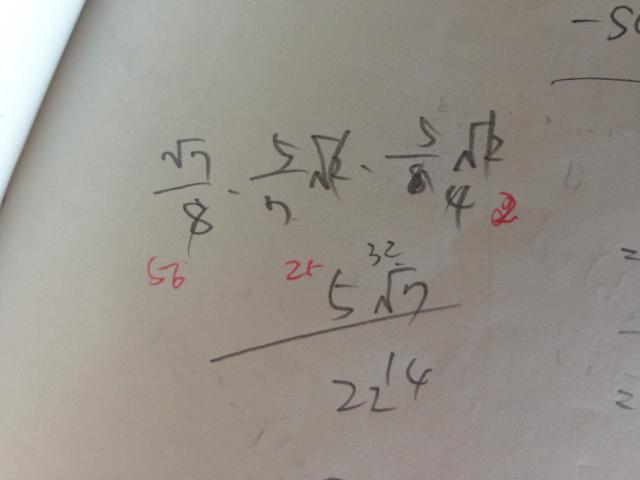 √7/8 · 5/7 √2 · 5/8 √2
4 2
56 25 32
5√7
2214